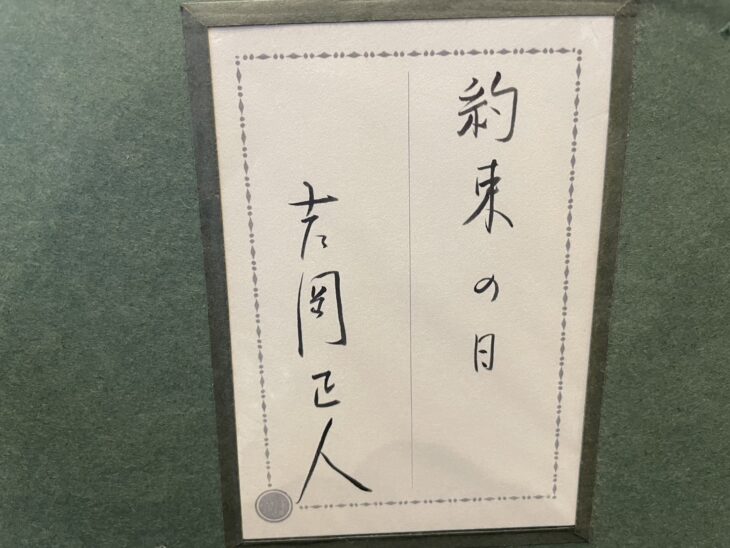 約束の日
吉岡正人